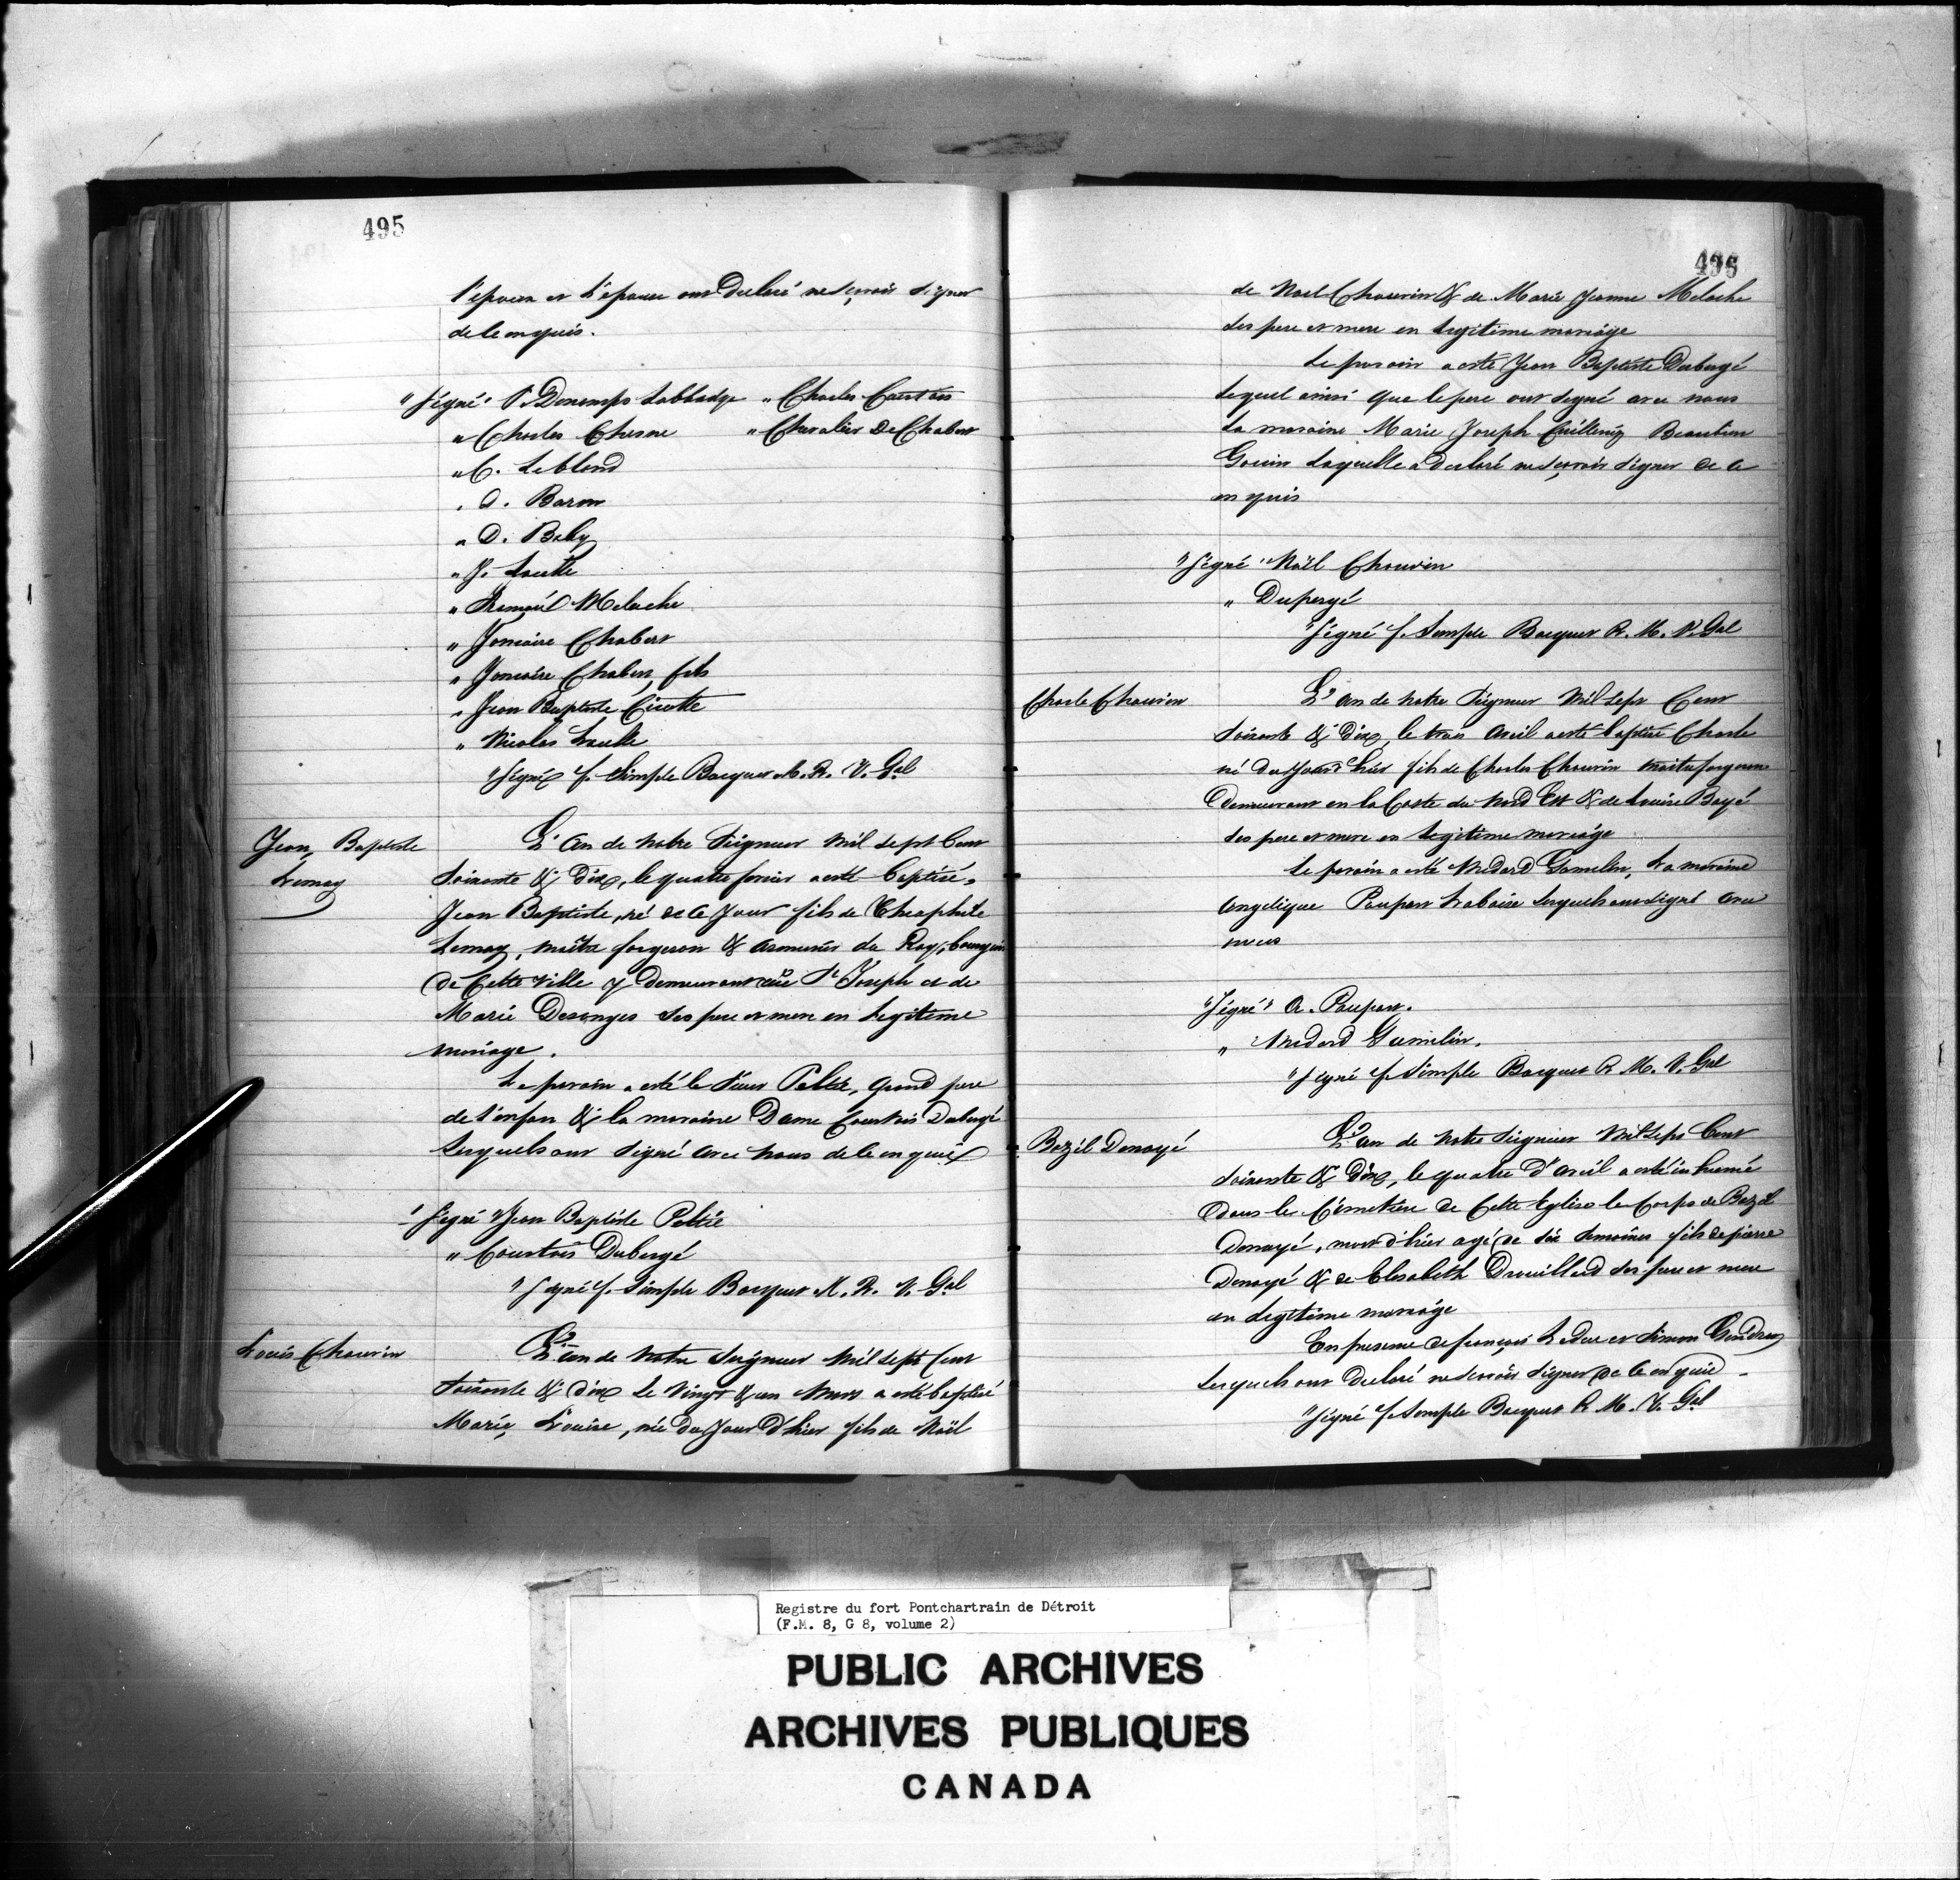 495
l'epoux et l'epouse ont Declaré ne sçavoir signer
de le enquis.
"Signé" P. Donomps Labbadye " Charles Courtois
" Charles Chesne " Chevalier De Chabert
" C. Leblond
" A. Baron
" D. Baby
" J. Loutte
" Meloche
" Joncaire Chabert
" Joncaire Chabert fils
" Jean Baptiste Cicotte
" Nicolas
"Signé f. Simple Bocquet M. R. V. Gal
Jean Baptiste
Lemay
L'An de notre Seigneur mil sept Cent
Soixante & dix, le quatre fevrier a esté baptisé
Jean Baptiste, né de ce Jour fils de Theophile
Lemay, maître forgeron & armurier du Roy, bourgeois
de Cette ville y demeurant rue St Joseph et de
Marie Desonges ses pere et mere en legitime
mariage.
Le parain a esté le Sieur Peltié, grand pere
de l'enfan & la maraine Dame Courtois Dubergé
lesquels ont signé avec nous de le enquis
"Signé "Jean Baptiste Peltié
" Courtois Dubergé
"Signé f. Simple Bocquet M. R. V. Gal
Louis Chauvin
L'an de notre Seigneur mil sept Cent
soixante & dix le vingt & un Mars a esté baptisé
Marie Louise, née du Jour d'hier fils de Noël
496
de Noel Chauvin & de Marie Jeanne Meloche
ses pere et mere en legitime mariage
Le parain a esté Jean Baptiste Dubergé
lequel ainsi que le pere ont signé avec nous
La maraine Marie Joseph Beaulieu
Gouin laquelle a declaré ne sçavoir signer de ce
enquis
"Signé "Noël Chauvin
" Dupergé
"Signé f. Semple Bocquet R. M. V. Gal
Charle Chauvin
L'an de notre Seigneur Mil sept Cent
soixante & dix, le trois Avril a esté baptisé Charle
né du Jour d'hier fils de Charles Chauvin maitre forgeron
Demeurant en la Coste du Nord Est & de Louise Boyé
ses pere et mere en legitime mariage
Le parain a esté Medard Gamelin, La maraine
Angelique Poupart Laboise lesquels ont signé avec
nous
"Signé" A. Poupart.
" Medard Gamelin.
"Signé f. Simple Bocquet R. M. V. Gal
Bazil Denoyé
L'an de notre Seigneur Mil Sept Cent
soixante & Dix, le quatre d'avril a esté inhumé
Dans le Cimetiere de Cette Eglise le Corps de Bazil
Denoyé, mort d'hier agé de six semaines fils de pierre
Denoyé & de Elisabeth Drouillard ses pere et mere
en legitime mariage
En presence de françois Leduc et Simon Gendron
lesquels ont declaré ne sçavoir signer de ce enquis
"Signé f. Semple Bocquet R. M. V. Gal
Registre du fort Pontchartrain de Détroit
(F.M. 8, G 8, volume 2)
PUBLIC ARCHIVES
ARCHIVES PUBLIQUES
CANADA